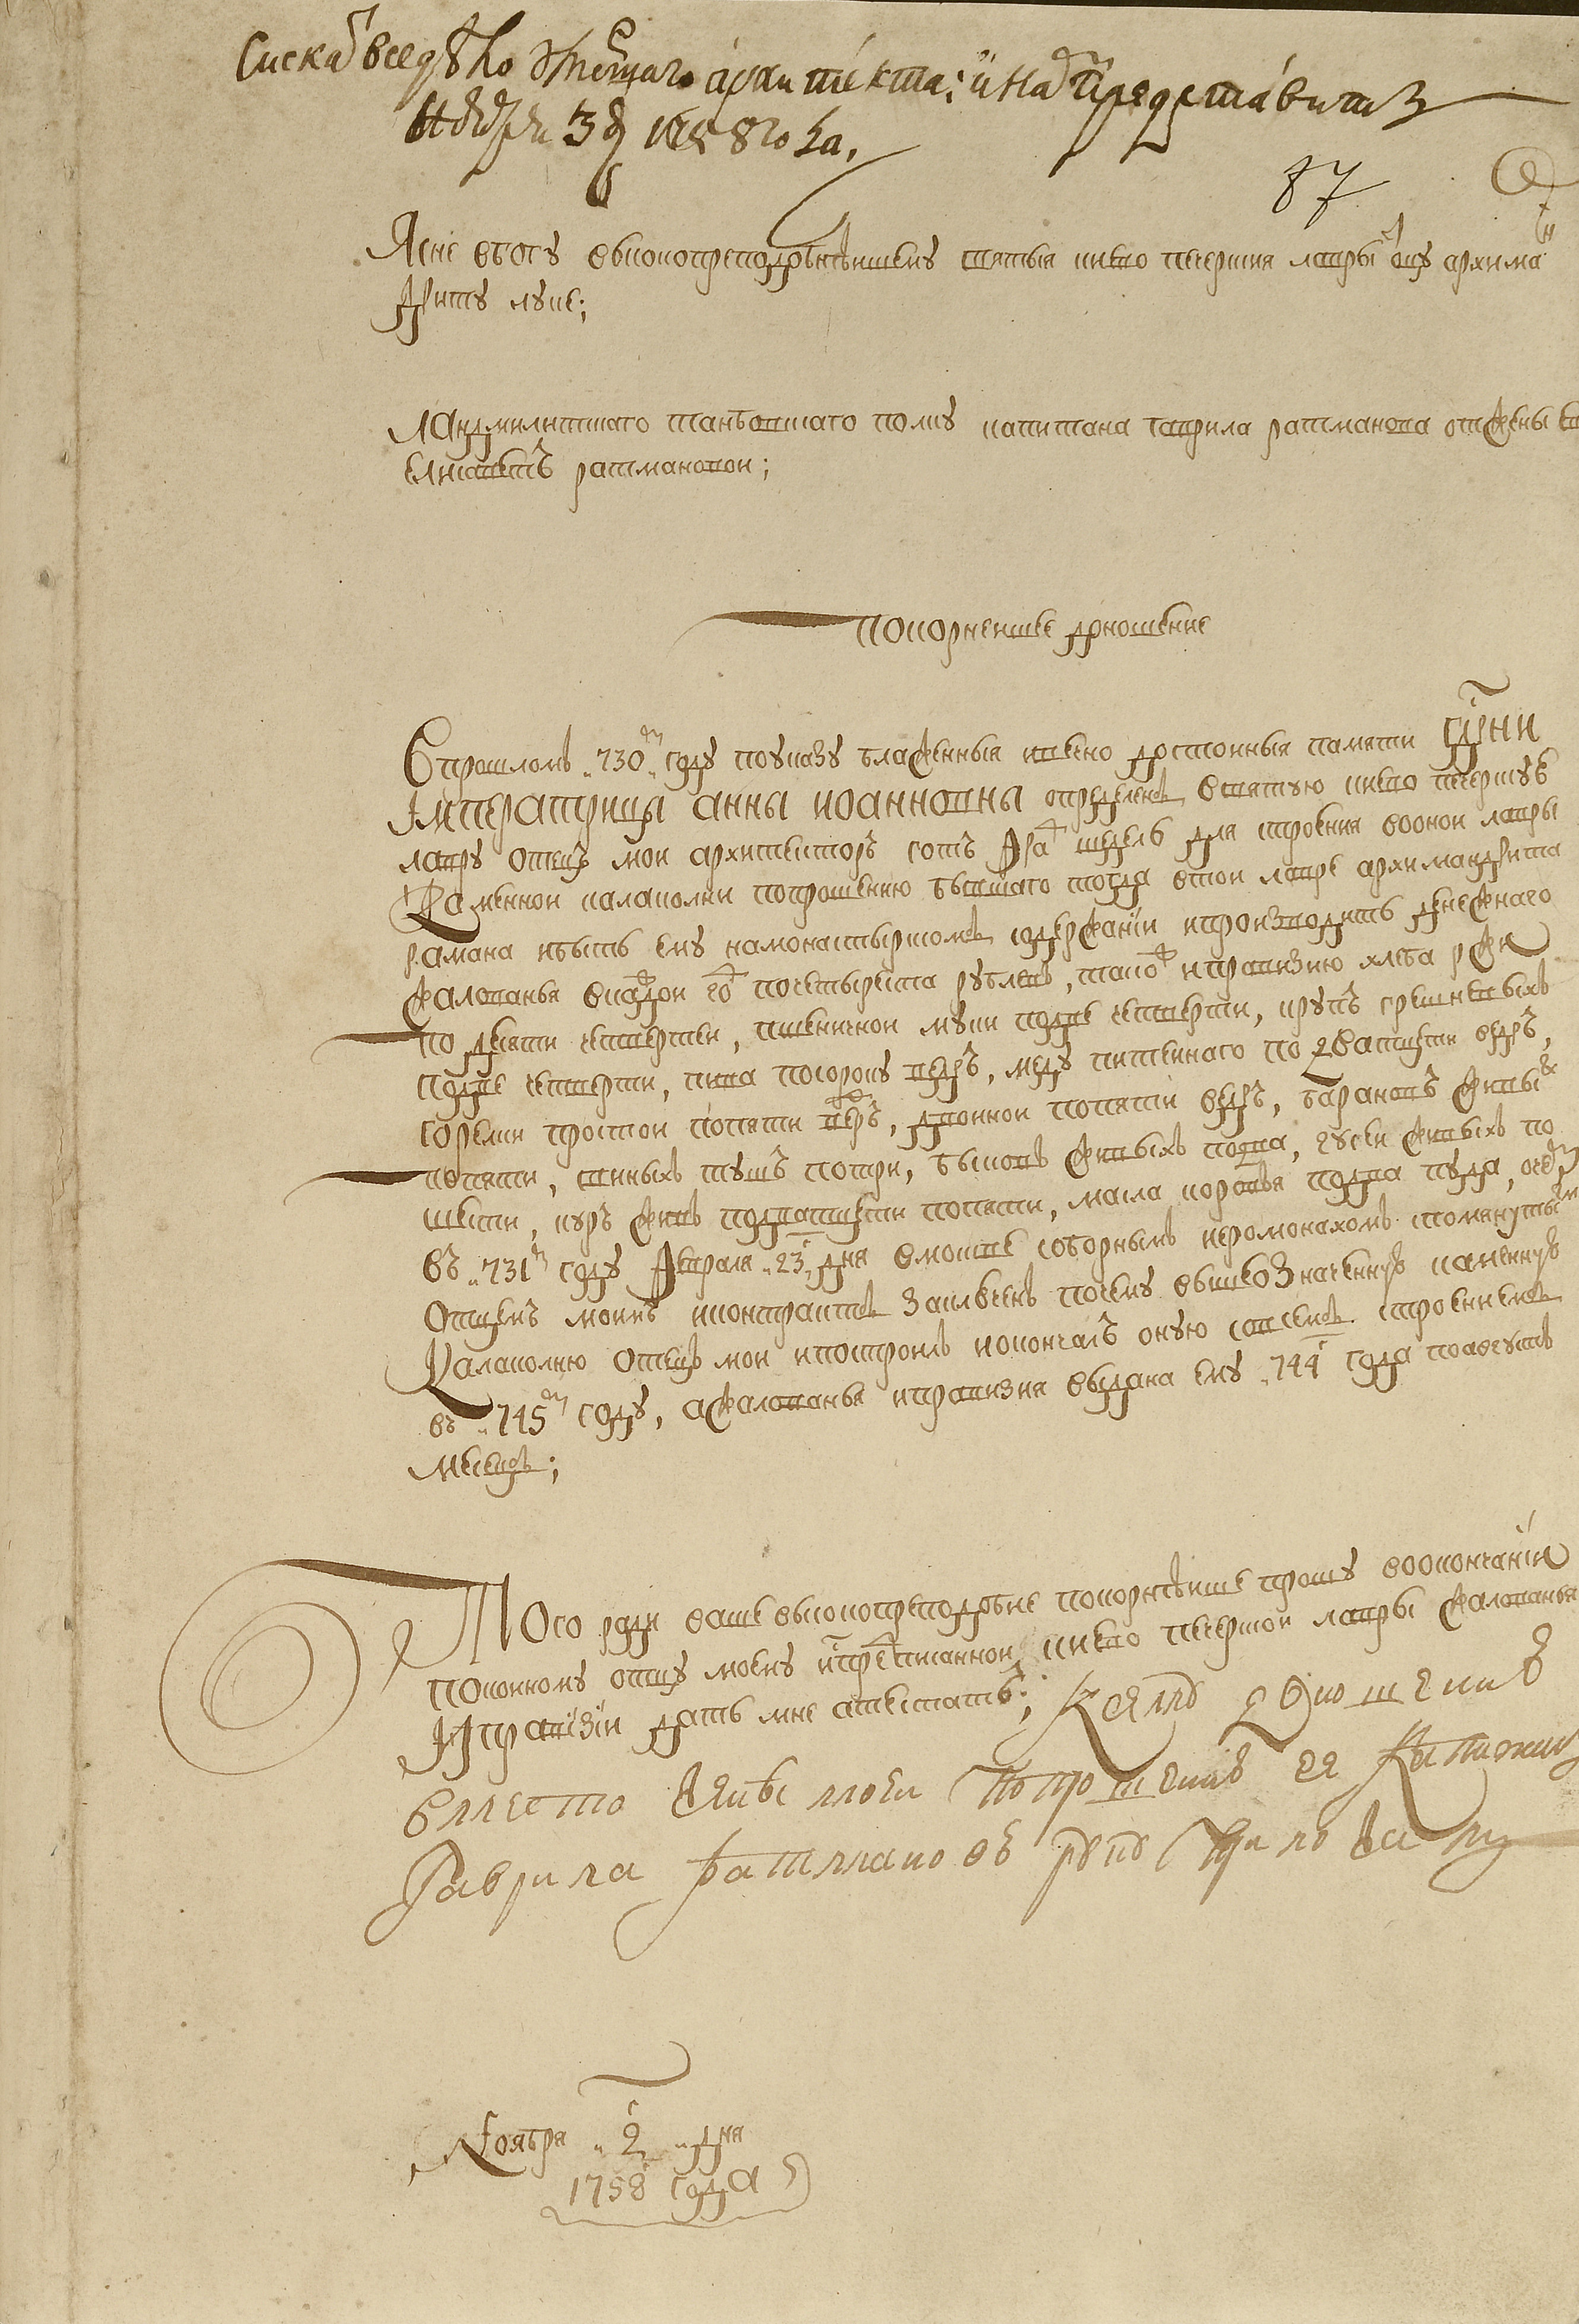 Сискат всед дѣло этого архитекта: и над. представитъ
Ноября 3 д 1758 года,
87
Ясне вбогу высокопреподобнѣишему святыя киево печерския лавры отцу архима
дриту луке;
Ландмилитцкаго танбовскаго полку капитана гаврила ратманова отжены ево
елисаветъ ратмановои;
покорнеишее доношение
Впрошломъ 730м году поуказу блаженныя ивечно достоиныя памяти Гдрни
Императрицы анны иоанновны определенъ всвятую киево печерскую
лавру отецъ мои архитекторъ готъ фрид шедель для строения воонои лавры
Каменнои калаколни попрошению бывшаго тогда втои лавре архимандрита
рамана ибыть ему намонастырскомъ содержаніи ипроизводить денежнаго
жалованья вкаждои год почетыреста рублевъ, також ипровизию хлеба ржи
по девяти четвертеи, пшеничнои муки подве четверти, крупъ грешневыхъ
подве четверти, пива посороку ведръ, меду питеинаго по дватцети ведръ,
горелки простои попяти ведръ, двоинои попяти ведръ, барановъ живых
попяти, свиныхъ тушъ потри, быковъ живыхъ подва, гусеи живыхъ по
шести, куръ живъ подватцети попяти, масла коровья подва пуда, очем
въ 731м году февраля 23 дня вмоскве соборнымъ иеромонахомъ споманутым
Отцемъ моимъ иконтрактъ заключенъ почему вышеозначенную каменную
Калаколню отецъ мои ипостроилъ иокончалъ оную совсемъ строениемъ
въ 745м году, ажалованья ипровизия выдана ему 744 года поавгустъ
месецъ;
Того ради ваше высокопреподобие покорнѣише прошу воокончаніи
покоиному отцу моему ипреписаннои киево печерскои лавры жалованья
Ипровизіи дать мне атестатъ; Ксему доношению
вместо жены моеи попрошению ея Капитанъ
Гаврила ратмановъ руку приложилъ
Ноября 2 дня
1758 года